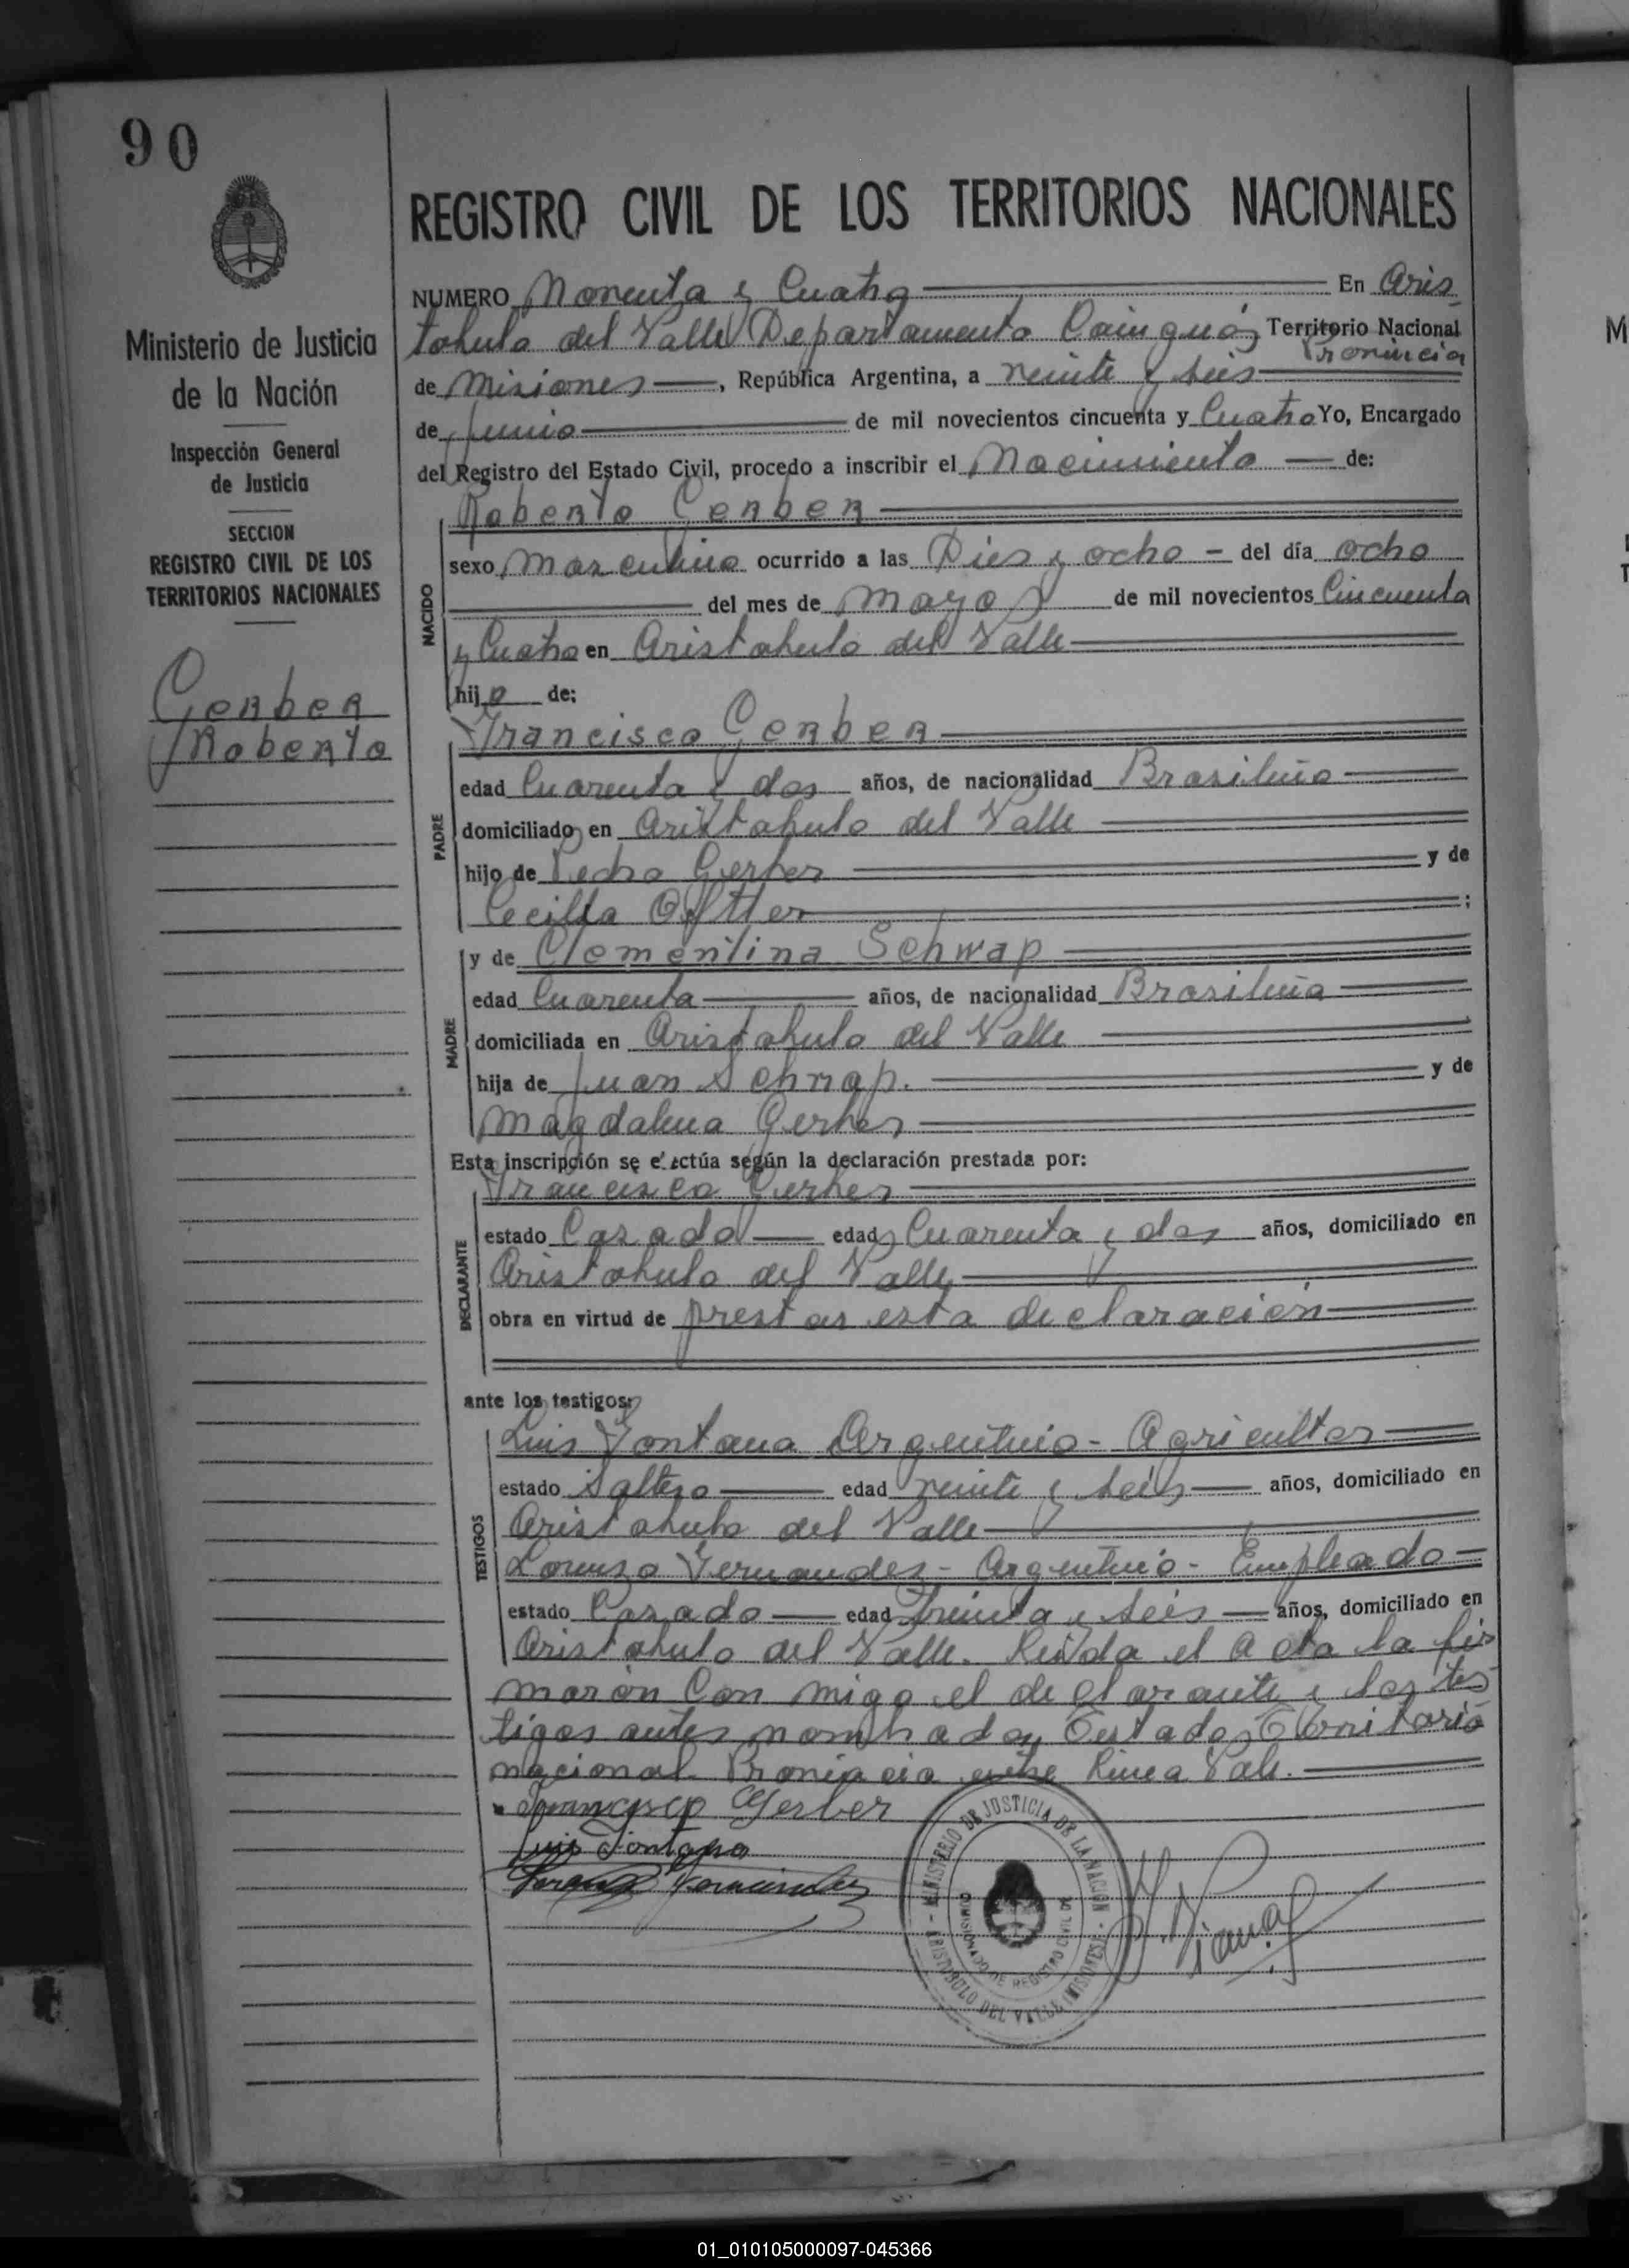 90
REGISTRO CIVIL DE LOS TERRITORIOS NACIONALES
Ministerio de Justicia
de la Nación
Inspección General
de Justicia
SECCION
REGISTRO CIVIL DE LOS
TERRITORIOS NACIONALES
Gerber
Roberto
NUMERO Noventa y Cuatro En Aris-
tobulo del Valle Departamento Cainguás Territorio Nacional
Provincia
de Misiones, República Argentina, a veinte y seis
de junio de mil novecientos cincuenta y Cuatro Yo, Encargado
del Registro del Estado Civil, procedo a inscribir el Nacimiento de:
NACIDO
Roberto Gerber
sexo Masculino ocurrido a las Dies y ocho - del día ocho
del mes de Mayo de mil novecientos Cincuenta
y Cuatro en Aristobulo del Valle
hijo de:
PADRE
Francisco Gerber
edad Cuarenta y dos años, de nacionalidad Brasileño
domiciliado en Aristobulo del Valle
hijo de Pedro Gerber y de
Cecilia ;
MADRE
y de Clementina Schwap
edad Cuarenta años, de nacionalidad Brasileña
domiciliada en Aristobulo del Valle
hija de Juan Schwap. y de
Magdalena Gerber
Esta inscripción se efectúa según la declaración prestada por:
DECLARANTE
Francisco Gerber
estado Casado edad Cuarenta y dos años, domiciliado en
Aristobulo del Valle
obra en virtud de prestar esta declaración
ante los testigos:
TESTIGOS
Luis Fontana Argentino - Agricultor
estado Soltero edad veinte y seis años, domiciliado en
Aristobulo del Valle
Lorenzo Fernandez - Argentino - Empleado
estado Casado edad treinta y seis años, domiciliado en
Aristobulo del Valle. Leida el Acta la fir
maron Con migo el declarante y los tes
tigos antes nombrados Testado, Territorio
nacional Provincia entre linea Vale.
Francisco Gerber
Luis Fontana
Lorenzo Fernandez
MINISTERIO DE JUSTICIA DE LA NACION
COMISIONADO DE REGISTRO CIVIL DE
ARISTOBULO DEL VALLE (MISIONES)
01_010105000097-045366